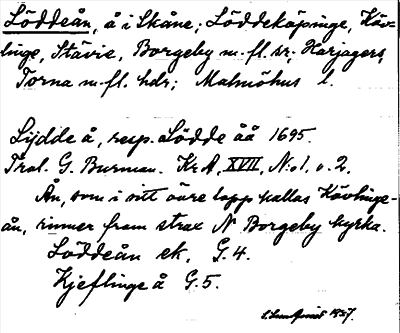 Löddeån, å i Skåne; Löddeköpinge, Käv-
linge, Stävie, Borgeby m. fl. sr; Harjagers,
Torna m. fl. hdr; Malmöhus l.
Lydde å, resp. Lödde åå 1695.
Pral. G. Burman. Kr A, XVII, N:o 1, o. 2.
Ån, som i sitt övre lopp kallas Kävlinge-
ån, rinner fram strax N Borgeby kyrka.
Löddeån ek. G. 4.
Kjeflinge å G. 5.
1937.